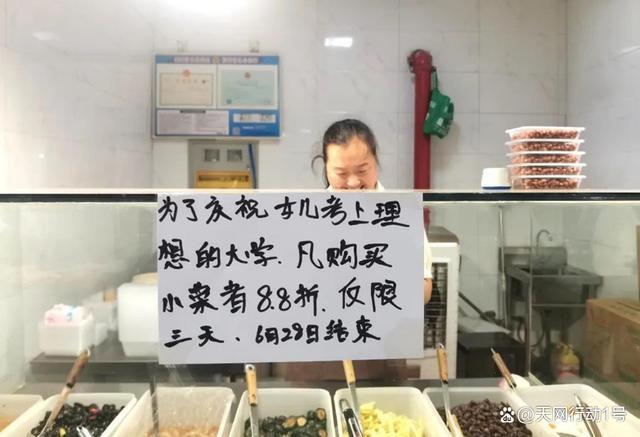 为了庆祝女儿考上理
想的大学.凡购买
小菜者8.8折.仅限
三天、6月28日结束
天网行动1号